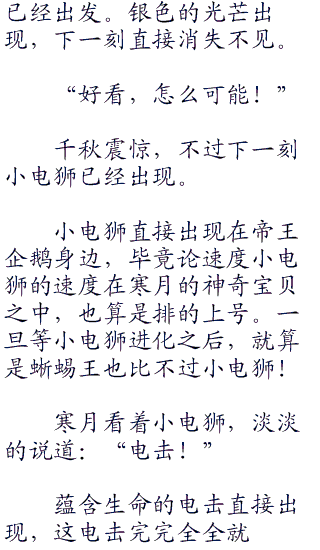 已经出发。银色的光芒出
现，下一刻直接消失不见。
“好看，怎么可能！”
千秋震惊，不过下一刻
小电狮已经出现。
小电狮直接出现在帝王
企鹅身边，毕竟论速度小电
狮的速度在寒月的神奇宝贝
之中，也算是排的上号。一
旦等小电狮进化之后，就算
是蜥蜴王也比不过小电狮！
寒月看着小电狮，淡淡
的说道：“电击！”
蕴含生命的电击直接出
现，这电击完完全全就